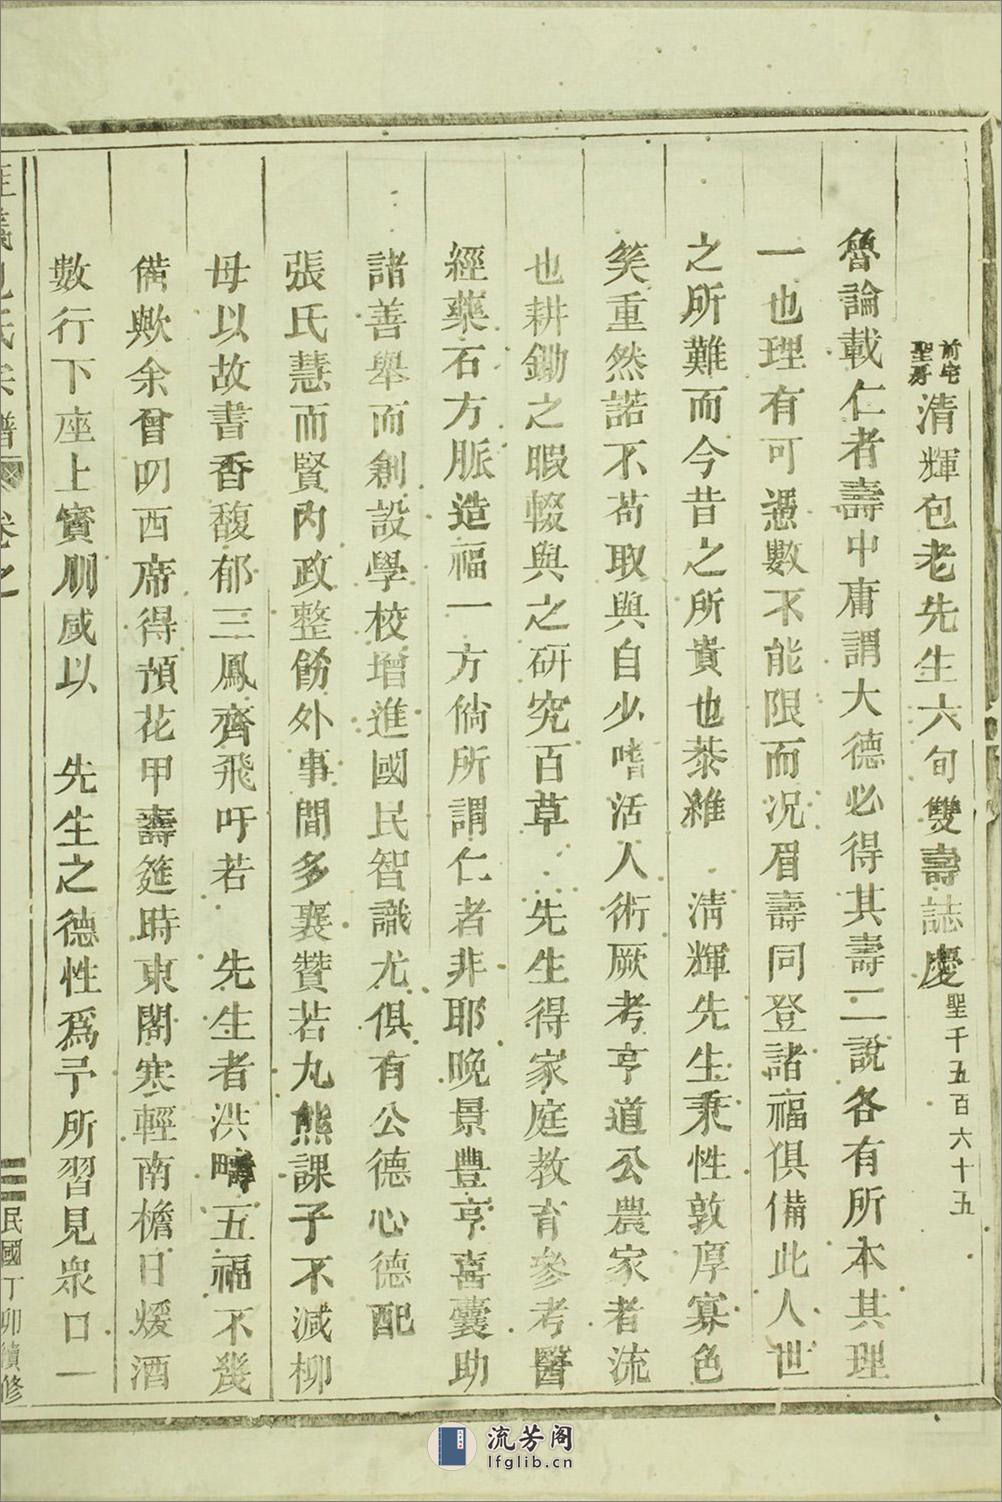 前宅聖房清輝包老先生六旬雙壽誌慶聖千五百六十五
魯論載仁者壽中庸謂大德必得其壽二說各有所本其理
一也理有可憑數不能限而况眉壽同登諸福俱備此人世
之所難而今昔之所貴也恭維　清輝先生秉性敦厚寡色
笑重然諾不苟取與自少嗜活人術厥考亨道公農家者流
也耕鋤之暇輟與之研究百草　先生得家庭教育參考醫
經藥石方脈造福一方倘所謂仁者非耶晚景豐亨喜囊助
諸善舉而創設學校增進國民智識尤俱有公德心德配
張氏慧而賢內政整飭外事間多襄贊若丸熊課子不減柳
母以故書香馥郁三鳳齊飛吁若　先生者洪疇五福不幾
備歟余曾叨西席得預花甲壽筵時東閣寒輕南檐日煖酒
數行下座上賓朋咸以　先生之德性爲予所習見衆口一
包氏宗譜　卷之　三　民國丁卯續修
流芳阁
lfglib.cn